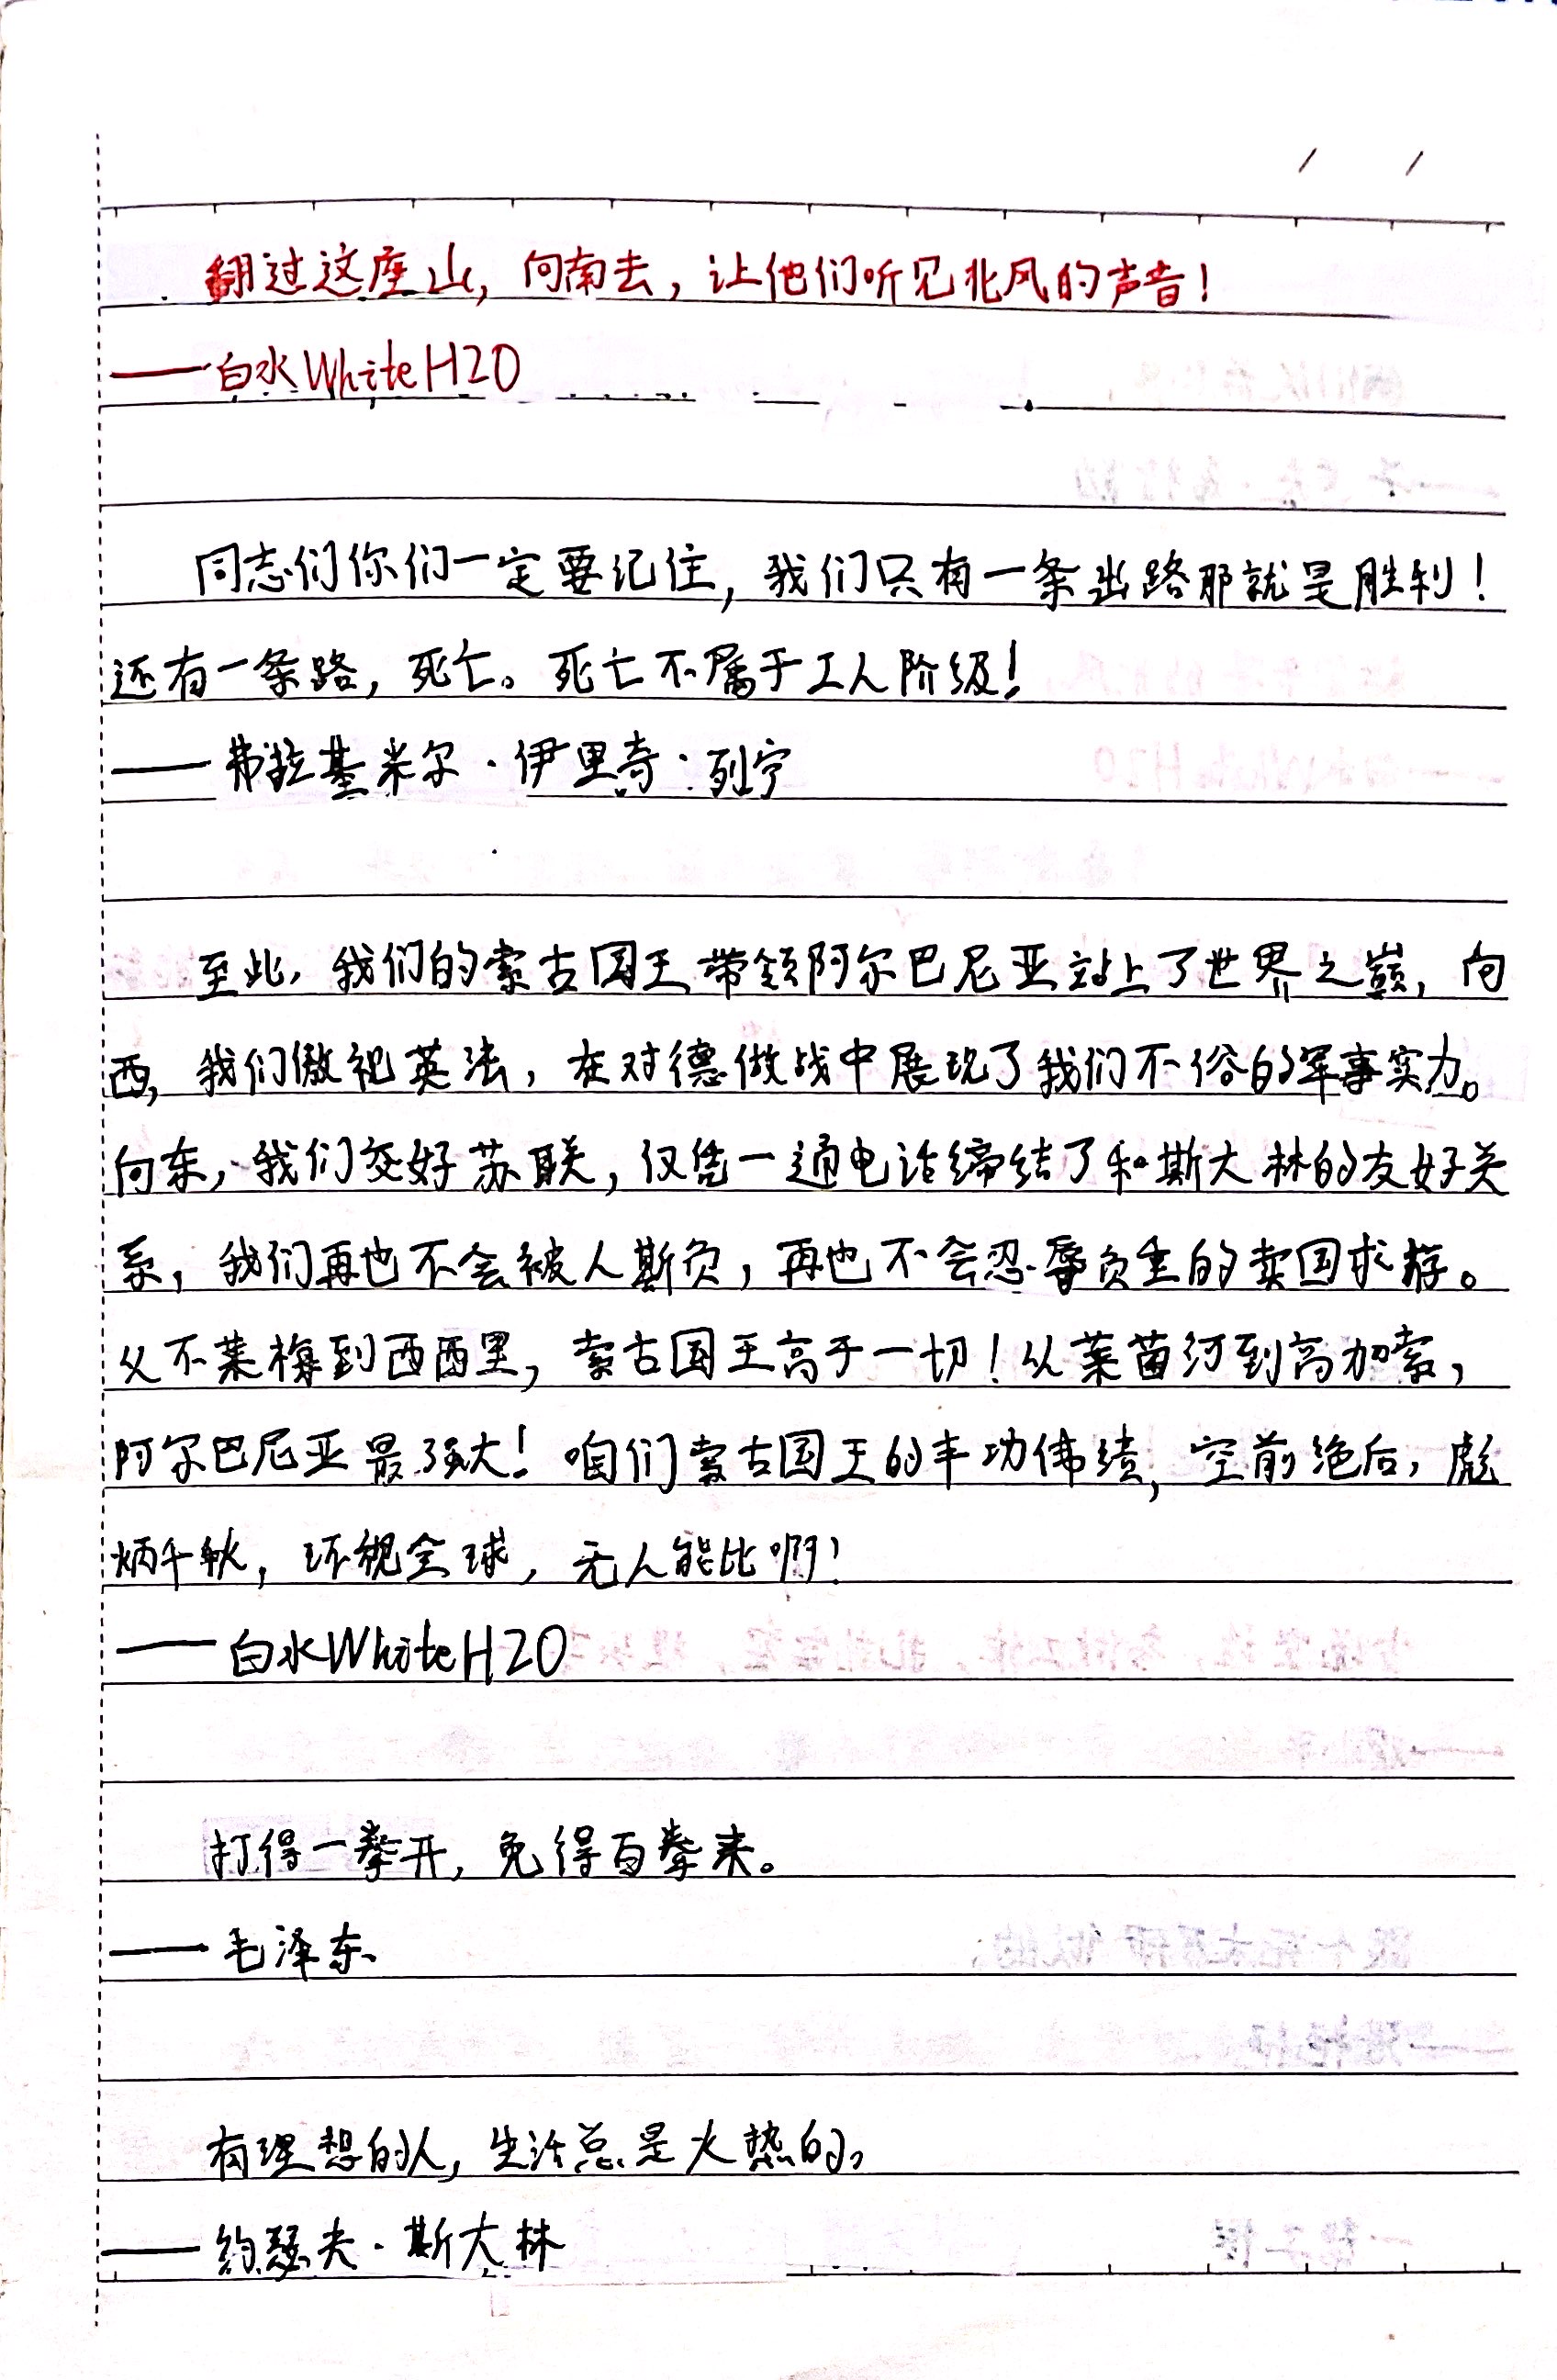 翻过这座山，向南去，让他们听见北风的声音！
——白水WhiteH2O
同志们你们一定要记住，我们只有一条出路那就是胜利！
还有一条路，死亡。死亡不属于工人阶级！
——弗拉基米尔·伊里奇·列宁
至此，我们的索古国王带领阿尔巴尼亚站上了世界之巅，向
西，我们傲视英法，在对德做战中展现了我们不俗的军事实力。
向东，我们交好苏联，仅凭一通电话缔结了和斯大林的友好关
系，我们再也不会被人斯负，再也不会忍辱负重的卖国求存。
从不莱梅到西西里，索古国王高于一切！从莱茵河到高加索，
阿尔巴尼亚最强大！咱们索古国王的丰功伟绩，空前绝后，彪
炳千秋，环视全球，无人能比啊！
——白水WhiteH2O
打得一拳开，免得百拳来。
——毛泽东
有理想的人，生活总是火热的。
——约瑟夫·斯大林